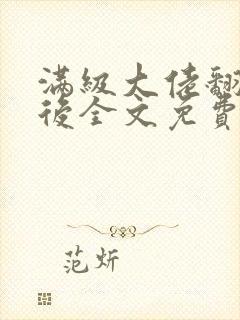 滿級大佬翻
後全文免費
范炘